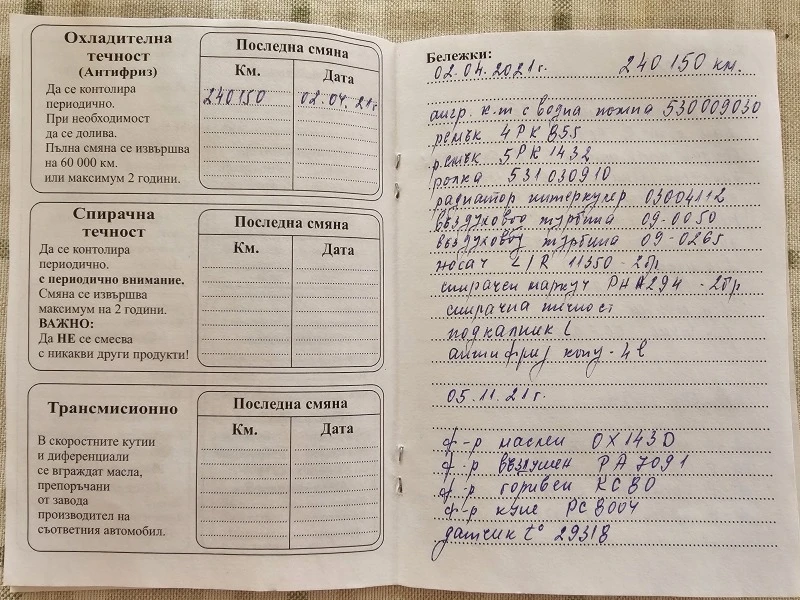 Охладителна
течност
(Антифриз)
Да се контолира
периодично.
При необходимост
да се долива.
Пълна смяна се извършва
на 60 000 км.
или максимум 2 години.
Последна смяна
Км. Дата
240150 02.04.21г
Спирачна
течност
Да се контолира
периодично.
с периодично внимание.
Смяна се извършва
максимум на 2 години.
ВАЖНО:
Да НЕ се смесва
с никакви други продукти!
Последна смяна
Км. Дата
Трансмисионно
В скоростните кутии
и диференциали
се вграждат масла,
препоръчани
от завода
производител на
съответния автомобил.
Последна смяна
Км. Дата
Бележки:
02.04.2021г. 240150 км.
ангр. к-т с водна помпа 530009030
ремък 4PK 855
ремък 5PK 1432
ролка 531030910
радиатор интеркулер 03004112
въздуховод турбина 09-0050
въздуховод турбина 09-0265
носач L/R 11350 - 2бр
спирачен маркуч PHA294 - 2бр
спирачна течност
подкалник L
антифриз конц - 4l
05.11.21г.
ф-р маслен OX143D
ф-р въздушен PA7091
ф-р горивен KC80
ф-р купе PC8004
датчик t° 29318